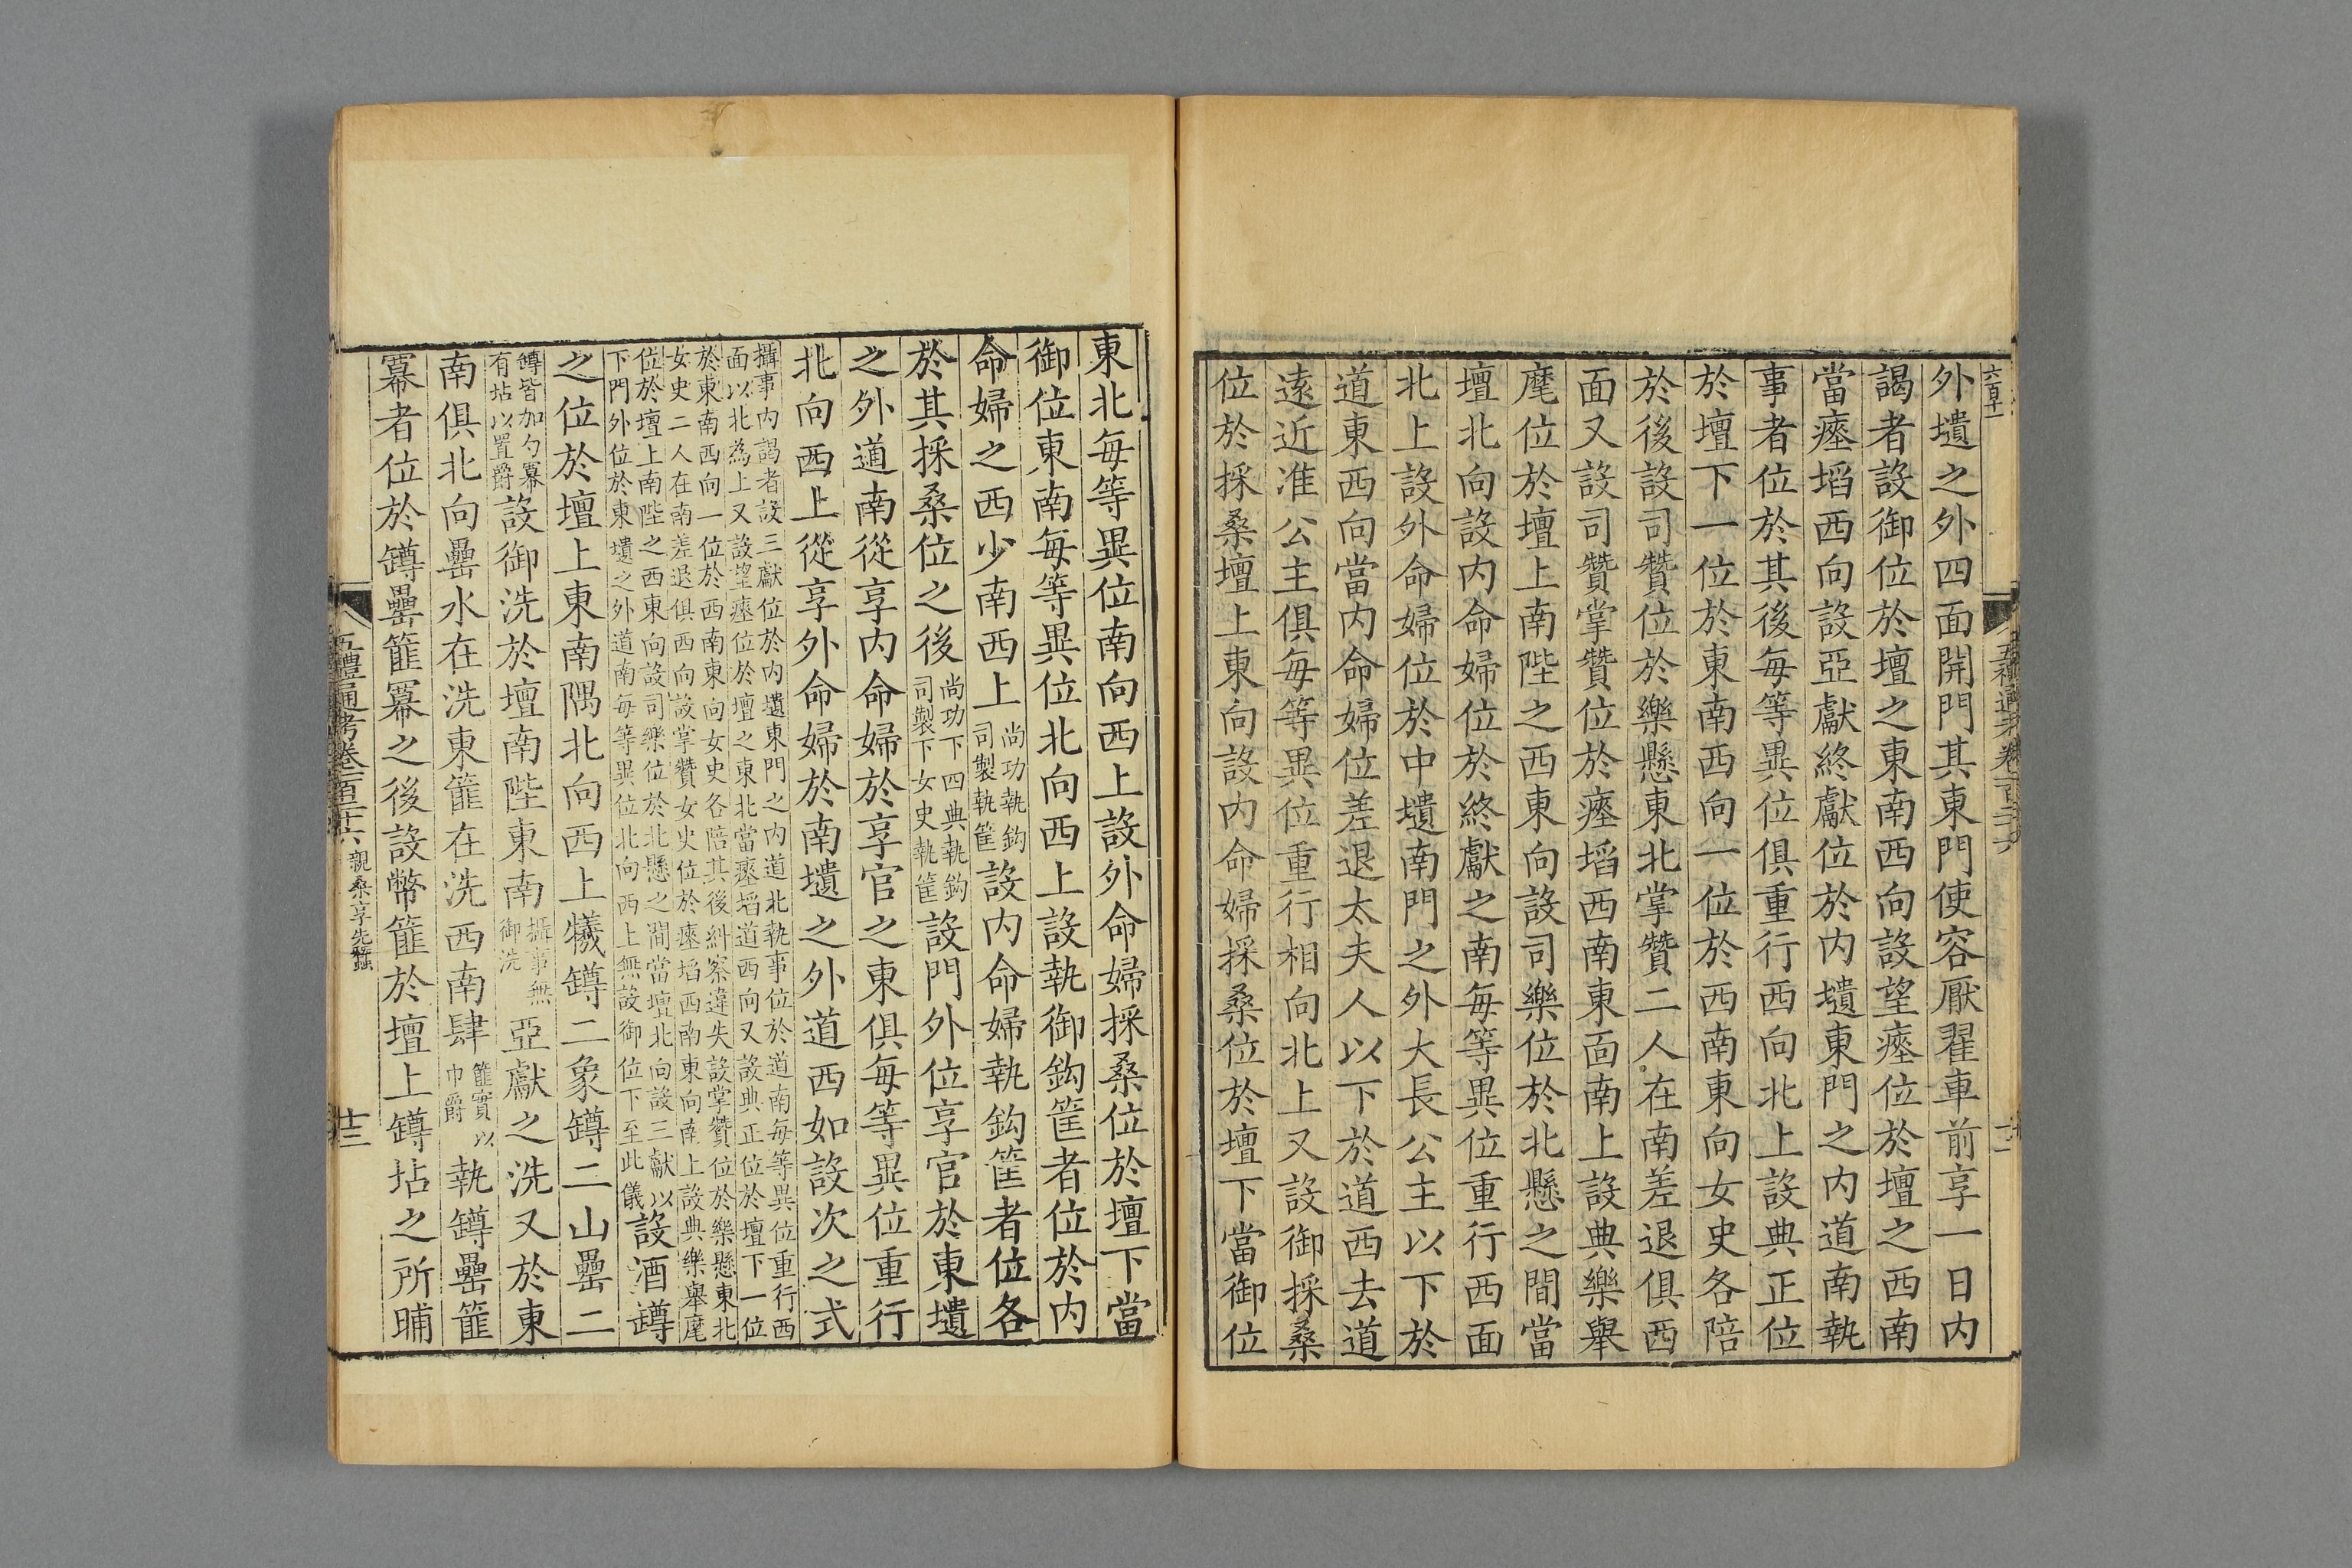 六百十一
外壝之外四面開門其東門使容厭翟車前享一日内
謁者設御位於壇之東南西向設望瘞位於壇之西南
當瘞埳西向設亞獻終獻位於内壝東門之内道南執
事者位於其後每等異位俱重行西向北上設典正位
於壇下一位於東南西向一位於西南東向女史各陪
於後設司贊位於樂懸東北掌贊二人在南差退俱西
面又設司贊掌贊位於瘞埳西南東面南上設典樂舉
麾位於壇上南陛之西東向設司樂位於北懸之間當
壇北向設内命婦位於終獻之南每等異位重行西面
北上設外命婦位於中壝南門之外大長公主以下於
道東西向當内命婦位差退太夫人以下於道西去道
遠近准公主俱每等異位重行相向北上又設御採桑
位於採桑壇上東向設内命婦採桑位於壇下當御位
東北每等異位南向西上設外命婦採桑位於壇下當
御位東南每等異位北向西上設執御鈎筐者位於内
命婦之西少南西上尚功執鈎司製執筐設内命婦執鈎筐者位各
於其採桑位之後尚功下四典執鈎司製下女史執筐設門外位享官於東壝
之外道南從享内命婦於享官之東俱每等異位重行
北向西上從享外命婦於南壝之外道西如設次之式
攝事内謁者設三獻位於内壝東門之内道北執事位於道南每等異位重行西
面以北為上又設望瘞位於壇之東北當瘞埳道西向又設典正位於壇下一位
於東南西向一位於西南東向女史各陪其後糾察違失設掌贊位於樂懸東北
女史二人在南差退俱西向設掌贊女史位於瘞埳西南東向南上設典樂舉麾
位於壇上南陛之西東向設司樂位於北懸之間當壇北向設三獻以
下門外位於東壝之外道南每等異位北向西上無設御位下至此儀設酒罇
之位於壇上東南隅北向西上犧罇二象罇二山罍二
罇皆加勺冪有坫以置爵設御洗於壇南陛東南攝事無御洗亞獻之洗又於東
南俱北向罍水在洗東篚在洗西南肆篚實以巾爵執罇罍篚
冪者位於罇罍篚冪之後設幣篚於壇上罇坫之所晡
五禮通考卷一百二十六 親桑享先蠶 十三